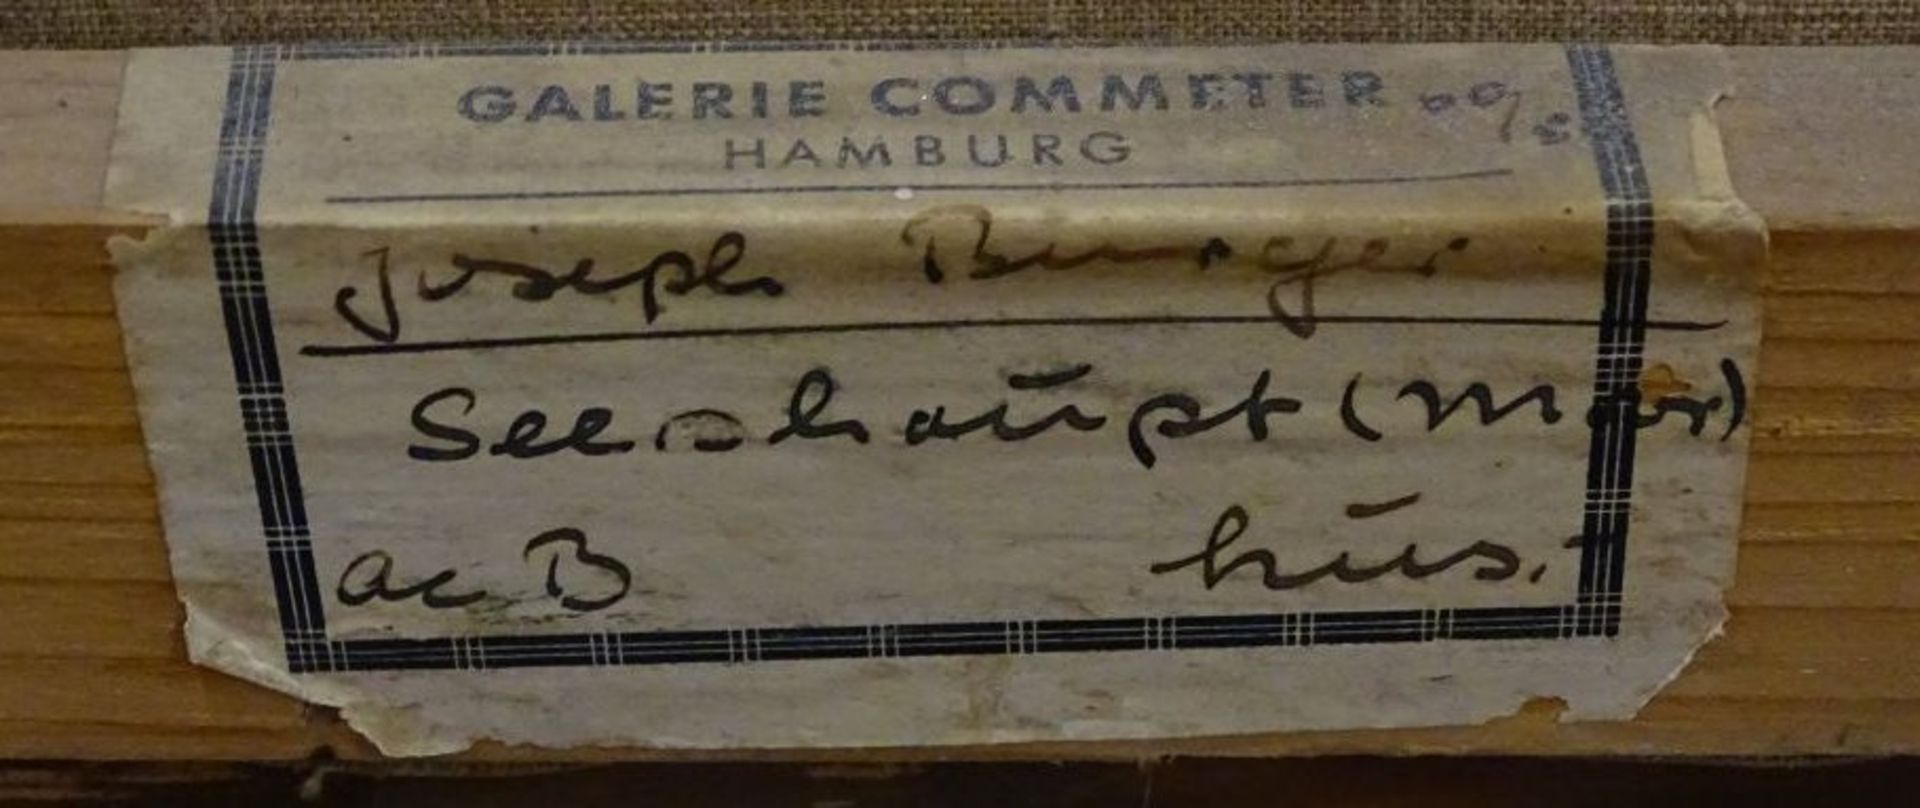 GALERIE COMMETER
HAMBURG
Joseph Burger
Seeshaupt (Mär)
ac B hus.